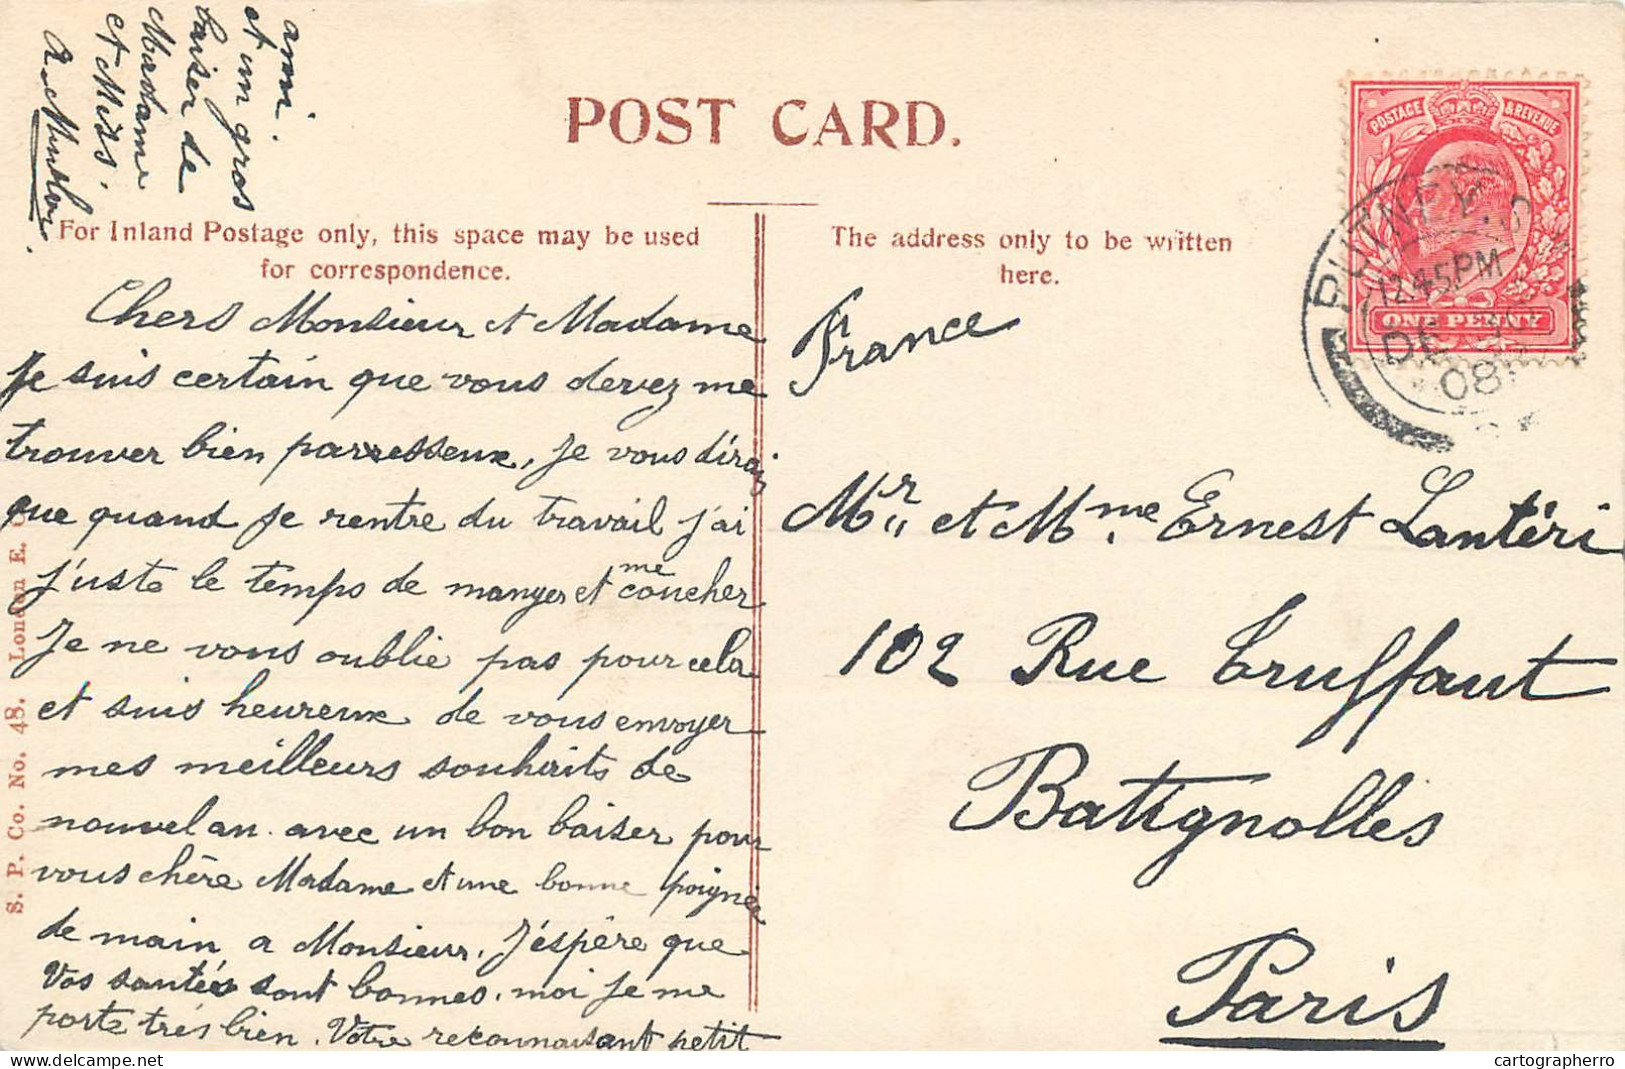 POST CARD.
For Inland Postage only, this space may be used
for correspondence.
The address only to be written
here.
POSTAGE & REVENUE
ONE PENNY
PUTNEY. S
12.45 PM
DE 30
08
Chers Monsieur et Madame
Je suis certain que vous devez me
trouver bien parresseux, Je vous dirai
que quand Je rentre du travail j'ai
j'uste le temps de manger et me coucher
Je ne vous oublie pas pour cela
et suis heureux de vous envoyer
mes meilleurs souhaits de
nouvel an. avec un bon baiser pour
vous chère Madame et une bonne poignée
de main a Monsieur. J'éspère que
Vos santés sont bonnes. moi Je me
porte très bien. Votre reconnaissant petit
ami.
et un gros
baiser de
Madame
et Miss.
France
Mr. et Mme Ernest Lantéri
102 Rue Truffaut
Batignolles
Paris
S. P. Co. No. 48. London E. C.
cartographerro